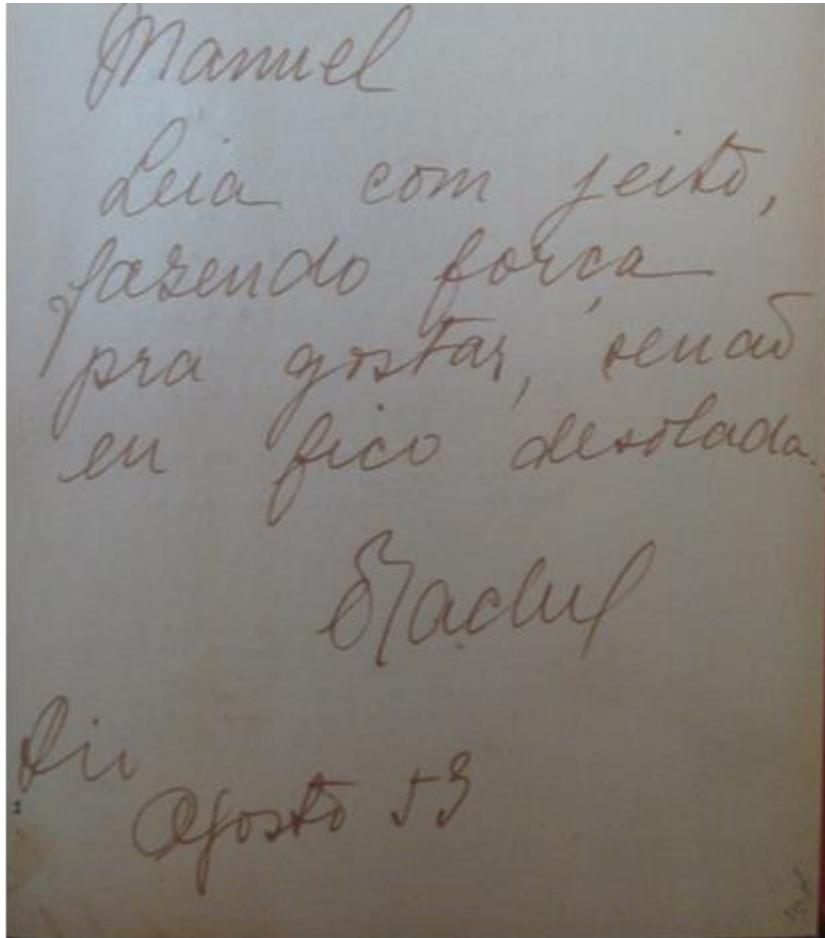 Manuel
Leia com jeito,
fazendo força
pra gostar, senão
eu fico desolada.
Rachel
Rio
Agosto 53